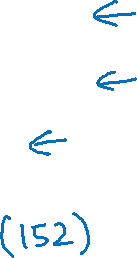 ←
←
←
(152)